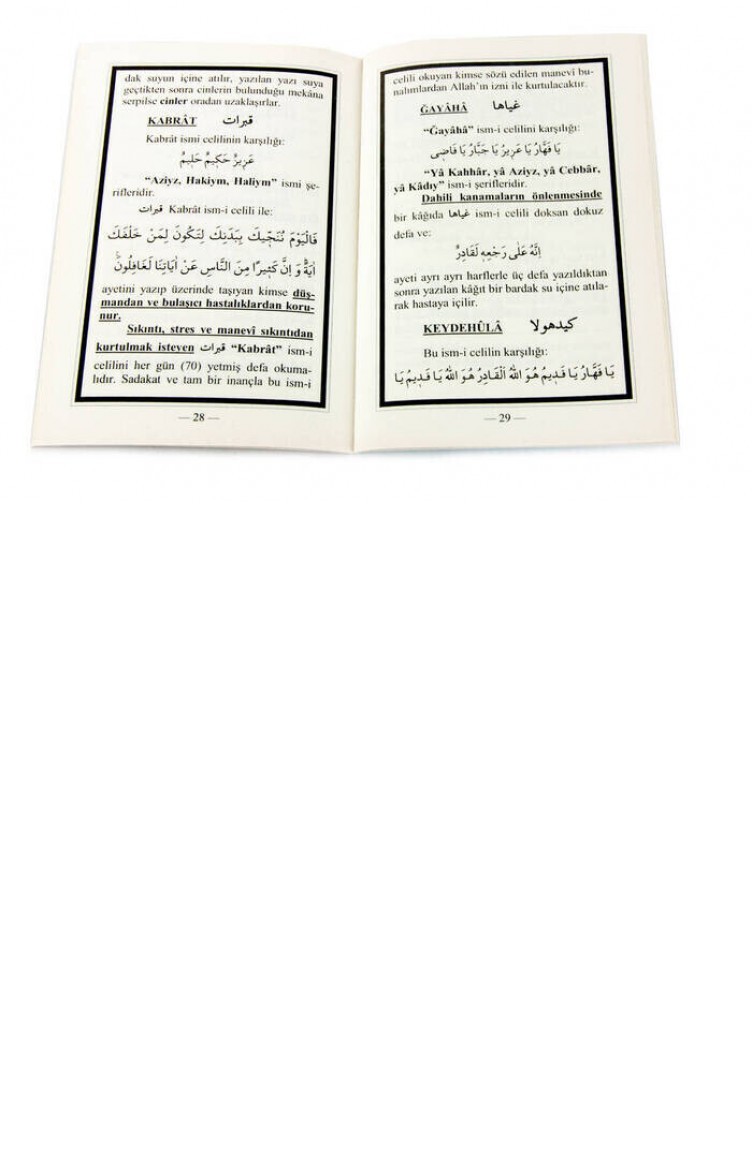 dak suyun içine atılır, yazılan yazı suya
geçtikten sonra cinlerin bulunduğu mekâna
serpilse cinler oradan uzaklaşırlar.
KABRÂT قبرات
Kabrât ismi celilinin karşılığı:
عَزِيزٌ حَكِيمٌ حَلِيمٌ
“Aziyz, Hakiym, Haliym” ismi şe-
rifleridir.
قبرات Kabrât ism-i celili ile:
فَالْيَوْمَ نُنَجِّيكَ بِبَدَنِكَ لِتَكُونَ لِمَنْ خَلْفَكَ
اٰيَةً وَ اِنَّ كَثِيرًا مِنَ النَّاسِ عَنْ اٰيَاتِنَا لَغَافِلُونَ
ayetini yazıp üzerinde taşıyan kimse düş-
mandan ve bulaşıcı hastalıklardan koru-
nur.
Sıkıntı, stres ve manevî sıkıntıdan
kurtulmak isteyen قبرات “Kabrât” ism-i
celilini her gün (70) yetmiş defa okuma-
lıdır. Sadakat ve tam bir inançla bu ism-i
— 28 —
celili okuyan kimse sözü edilen manevi bu-
nalımlardan Allah’ın izni ile kurtulacaktır.
ĞAYÂHÂ غياها
“Ğayâhâ” ism-i celilini karşılığı:
يَا قَهَّارُ يَا عَزِيزُ يَا جَبَّارُ يَا قَاضِى
“Yâ Kahhâr, yâ Aziyz, yâ Cebbâr,
yâ Kâdıy” ism-i şerifleridir.
Dahili kanamaların önlenmesinde
bir kâğıda غياها ism-i celili doksan dokuz
defa ve:
اِنَّهُ عَلٰى رَجْعِهِ لَقَادِرٌ
ayeti ayrı ayrı harflerle üç defa yazıldıktan
sonra yazılan kâğıt bir bardak su içine atıla-
rak hastaya içilir.
KEYDEHÛLÂ كيدهولا
Bu ism-i celilin karşılığı:
يَا قَهَّارُ يَا قَدِيمُ هُوَ اللهُ الْقَادِرُ هُوَ اللهُ يَا قَدِيمُ يَا
— 29 —